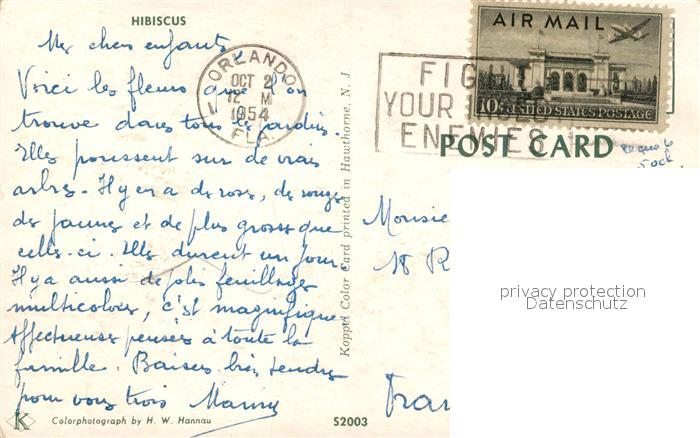 HIBISCUS
Mes chers enfants,
Voici les fleurs que l'on
trouve dans tous les jardins.
Elles poussent sur de vrais
arbres. Il y en a de roses, de rouges
des jaunes et de plus grosses que
celles-ci. Elles durent un jour.
Il y a aussi de jolis feuillages
multicolores, c'est magnifique
Affectueuses pensées à toute la
famille. Baisers très tendres
pour vous trois Mamy
Colorphotograph by H. W. Hannau
S2003
Koppel Color Card printed in Hawthorne, N. J.
ORLANDO
OCT 2
12 M
1954
FLA.
YOUR
ENEMIES
AIR MAIL
10¢ UNITED STATES POSTAGE
POST CARD
Monsie
18 R
Fran
privacy protection
Datenschutz
K